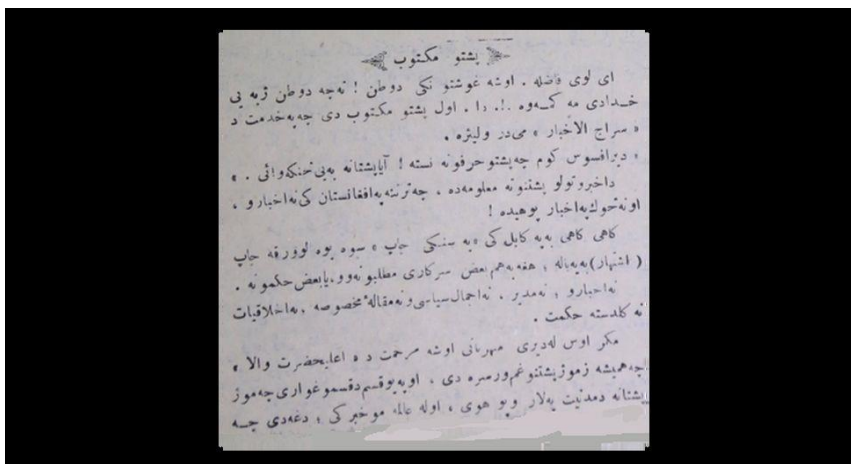 پشتو مکتوب
ای لوی فاضله . اوښه غوښتو نکی دوطن ! نه‌چه دوطن ژبه یی
خدادی مه کمه‌وه .! . دا . اول پشتو مکتوب دی چه‌په‌خدمت د
« سراج الاخبار » می‌در ولیژه .
« دیرافسوس کوم چه‌پشتوحرفونه نسته ! آیاپشتانه به‌یی‌څنکه‌وائی . »
داخبروتولو پشتنوته معلومه‌ده ، چه‌ترننه‌په‌افغانستان کی‌نه‌اخبارو ،
اونه‌څوك‌په‌اخبار پوهیده !
کاهی کاهی به‌په کابل کی «په سنکی چاپ » سوه یوه لوورقه چاپ
( اشتهار ) به‌یه‌باله ؛ هغه‌به‌هم‌بعض سرکاری مطلبونه‌وو،یابعض‌حکمونه .
نه‌اخبارو ؛ نه‌مدیر . نه‌اجمال‌سیاسی‌ونه‌مقالهٔ‌مخصوصه ،نه‌اخلاقیات
نه کلدسته حکمت .
مکر اوس له‌دیری مهربانی اوښه مرحمت ده اعلیحضرت والا »
چه‌همیشه زموژپشتنوغم‌ورسره دی ، اوپه‌یوقسم‌دقسموغواری‌چه‌موژ
پشتانه دمدنیت په‌لار وبو هوی ، اوله عالمه موخبرکی ؛ دغه‌دی چــه